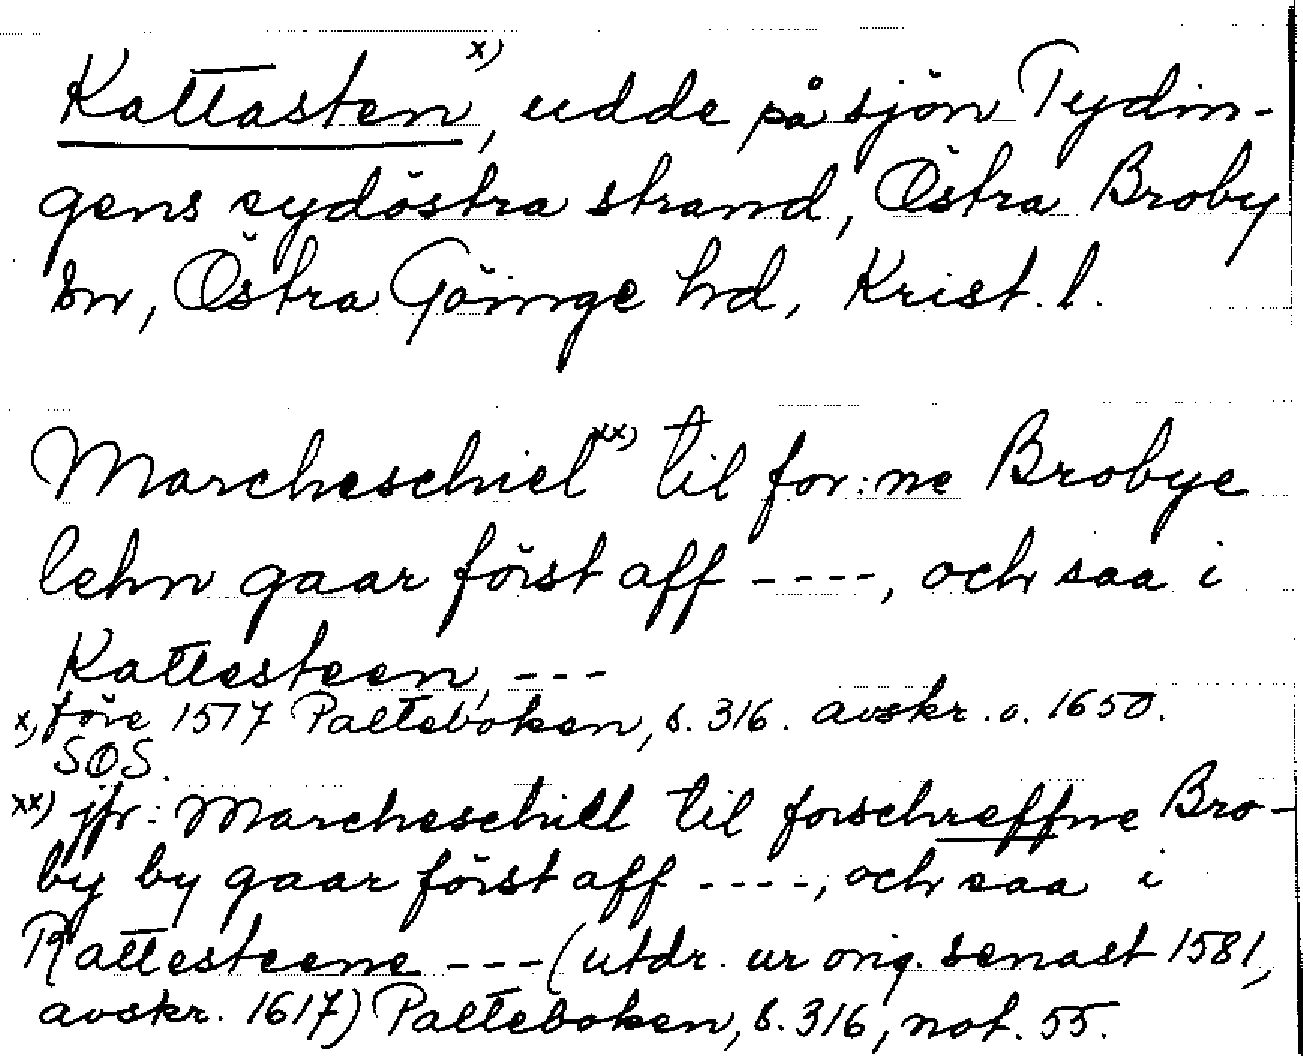 Kattasten x), udde på sjön Tydin-
gens sydöstra strand, Östra Broby
sn, Östra Göinge hd, Krist. l.
Marcheschiel xx) til for:ne Brobye
lehn gaar först aff ----, och saa i
Kattesteen, ---
x) före 1517 Palteboken, s. 316. avskr. o. 1650.
SOS.
xx) jfr: Marcheschill til forschreffne Bro-
by by gaar först aff ----, och saa i
Rattesteene --- (utdr. ur orig. senast 1581,
avskr. 1617) Palteboken, s. 316, not. 55.